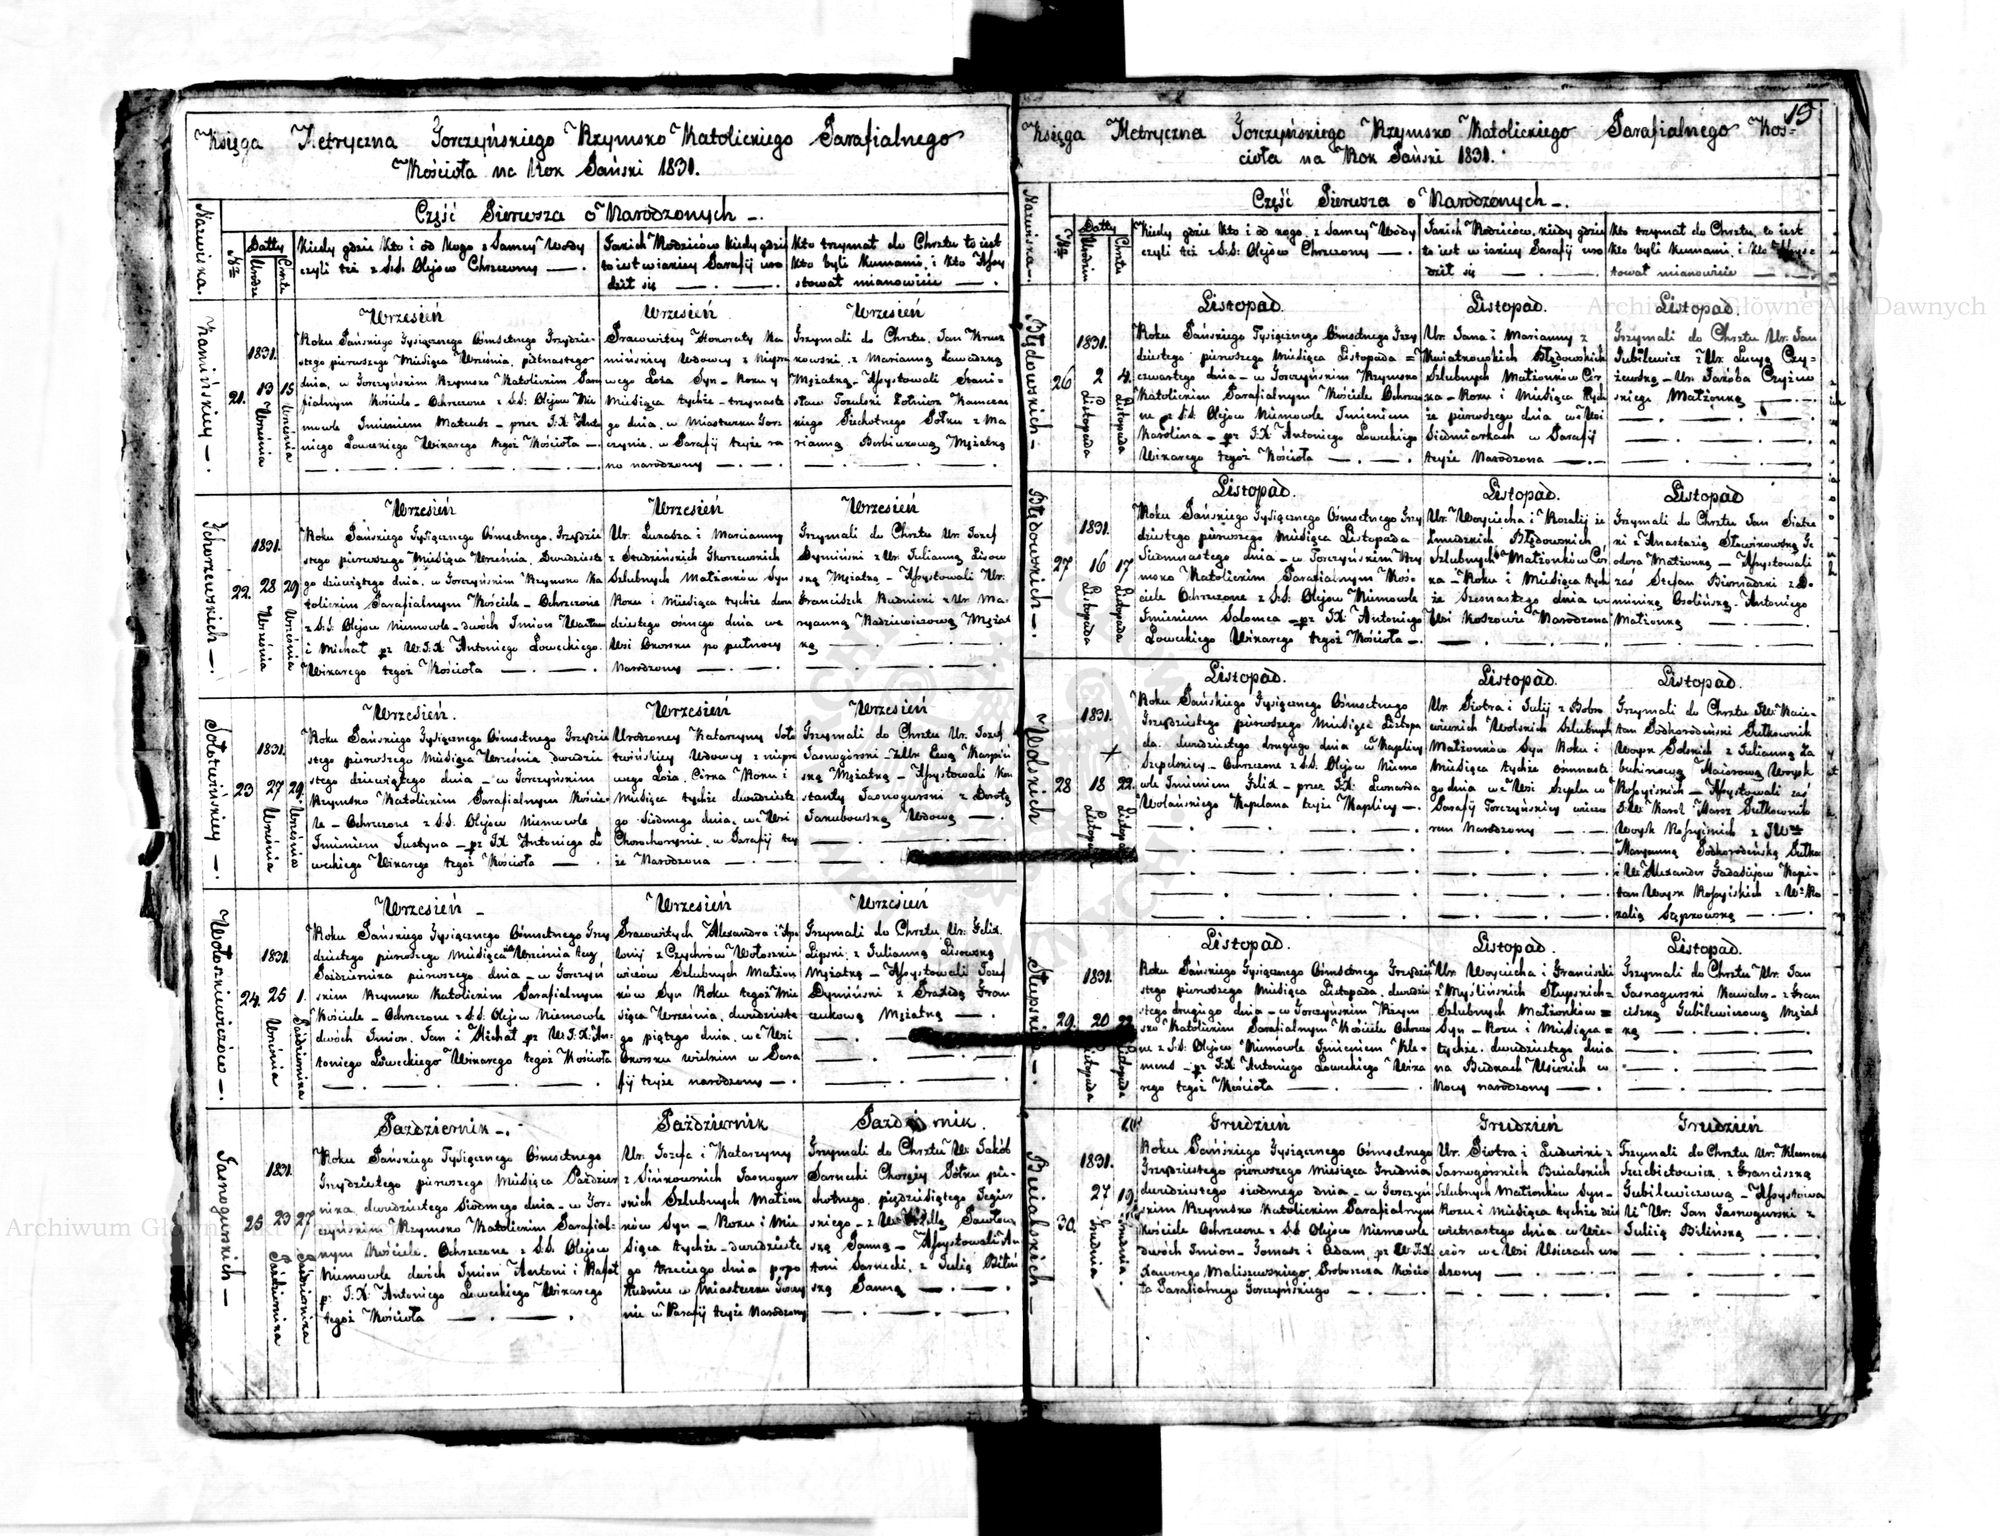 Księga Metryczna Horczyńskiego Rzymsko Katolickiego Parafialnego
Kościoła na Rok Pański 1831.
Część Pierwsza o Narodzonych —.
Nazwiska.
Nro
Datty
Urodz
Chrztu
Kiedy gdzie kto i od kogo z Samey Wody
czyli też z S.S. Olejow Chrzczony — .
Jakich Rodziców kiedy gdzie
to iest w iakiey Parafij uro
dził się — . — .
Kto trzymał do Chrztu to iest
kto byli Kumami i kto Assy
stował mianowicie — .
Kamińskiey —.
21.
1831.
13
Września
15
Września
Wrzesień
Roku Pańskiego Tysiącznego Ośmsetnego Trzydzie-
stego pierwszego Miesiąca Września, piętnastego
dnia, w Horczyńskim Rzymsko Katolickim Para
fialnym Kościele – Ochrzczone z S.S. Olejow Nie
mowle Imieniem Mateusz – przez J.X. Anto
niego Łoweckiego Wikarego tegoż Kościoła —
Wrzesień
Pracowitey Honoraty Ka
mińskiey Wdowy z niepra
wego Łoża Syn – Roku y
Miesiąca tychże – trzynaste
go dnia, w Miasteczku Hor
czynie, w Parafij teyże ra
no narodzony — . — .
Wrzesień
Trzymali do Chrztu Jan Krucz
kowski z Marianną Ławecką
Mężatką – Assystowali Frani-
sław Tozulski Żołnierz Kamczac
kiego Piechotnego Półku z Ma
rianną Borbiukową Mężatką
Skorzewskich —.
22.
1831.
28
Września
29
Września
Wrzesień
Roku Pańskiego Tysiącznego Ośmsetnego, Trzydzie
stego pierwszego Miesiąca Września, Dwudzieste
go dziewiątego dnia, w Horczyńskim Rzymsko Ka
tolickim Parafialnym Kościele – Ochrzczone
z S.S. Olejow Niemowle – dwóch Imion Wacław
i Michał pz W.J.X. Antoniego Łoweckiego
Wikarego tegoż Kościoła — . — .
Wrzesień
Ur. Łukasza i Marcianny
z Srudzińskich Skorzewskich
Szlubnych Małżonków Syn
Roku i Miesiąca tychże dwu
dziestego ósmego dnia we
Wsi Oworsku po pułnocy
Narodzony — . — .
Wrzesień
Trzymali do Chrztu Ur. Jozef
Dymiński z Ur. Julianną Lisow
ską Mężatką – Assystowali Ur.
Franciszek Rudnicki z Ur. Ma
ryanną Radziewiczową Mężat
ką — . — .
Sołotwińskiey —.
23
1831.
27
Września
29.
Września
Wrzesień.
Roku Pańskiego Tysiącznego Ośmsetnego Trzydzie
stego pierwszego Miesiąca Września dwudzie
stego dziewiątego dnia – w Horczyńskim
Rzymsko Katolickim Parafialnym Koście-
le – Ochrzczone z S.S. Olejow Niemowle
Imieniem Justyna – pz J.X. Antoniego Ło
weckiego Wikarego tegoż Kościoła — .
Wrzesień
Urodzoney Katarzyny Soło
twińskiey Wdowy z niepra
wego Łoża, Córka Roku i
Miesiąca tychże dwudzieste
go Siódmego dnia, we Wsi
Chorochorynie, w Parafij tey
że Narodzona — . — .
Wrzesień
Trzymali do Chrztu Ur. Jozef
Jasnogórski – z Ur. Ewą Karpiń
ską Mężatką – Assystowali Kon
stanty Jasnogurski z Dorotą
Jakubowską Wdową — .
Wołoszkiewiczów —.
24.
1831.
25
Września
1.
Października
Wrzesień –
Roku Pańskiego Tysiącznego Ośmsetnego Trzy
dziestego pierwszego Miesiąca Września
Października pierwszego dnia – w Horczyń
skim Rzymsko Katolickim Parafialnym
Kościele – Ochrzczone z S.S. Olejow Niemowle
dwóch Imion, Jan i Michał pz W.J.X. An-
toniego Łoweckiego Wikarego tegoż Kościoła
Wrzesień
Pracowitych Alexandra i Apo
lonij z Czychrów Wołoszkie
wiczów Szlubnych Małżon
ków Syn Roku tegoż Mie
siąca Września, dwudzieste
go piątego dnia, we Wsi
Oworsku wielkim w Para
fij teyże narodzony — .
Wrzesień
Trzymali do Chrztu Ur. Felix
Lipski, z Julianną Lisowską
Mężatką – Assystowali Jozef
Dymiński z Praxedą Fran
ceukową Mężatką — .
Jasnogurskich —
25
1831.
23
Października
27
Października
Październik —.
Roku Pańskiego Tysiącznego Ośmsetnego
Trzydziestego pierwszego Miesiąca Paździer
nika, dwudziestego Siódmego dnia – w Hor-
czyńskim Rzymsko Katolickim Parafial-
nym Kościele. Ochrzczone z S.S. Olejow
Niemowle dwóch Imion Antoni i Rafał
pz J.X. Antoniego Łoweckiego Wikarego
tegoż Kościoła — . — .
Październik
Ur. Jozefa i Katarzyny
z Sińkowskich Jasnogur
skich Szlubnych Małżon
ków Syn – Roku i Mie
siąca tychże – dwudzieste
go trzeciego dnia popo
łudniu w Miasteczku Horczy
nie w Parafij teyże Narodzony
Październik.
Trzymali do Chrztu Ur. Jakób
Sarnecki Chorąży Półku pie-
chotnego, pięćdziesiątego Jegier
skiego – z Ur. Pawłow
ską Panną – Assystowali An
toni Sarnecki, z Julią Biliń
ską Panną — . — .
19
Księga Metryczna Horczyńskiego Rzymsko Katolickiego Parafialnego Koś-
cioła na Rok Pański 1831.
Część Pierwsza o Narodzonych —.
Nazwiska —.
Nro
Datty
Urodzin
Chrztu
Kiedy gdzie kto i od kogo, z Samey Wody
czyli też z S.S. Olejow Chrzczony — .
Jakich Rodziców, kiedy gdzie
to iest w iakiey Parafij uro
dził się — . — .
Kto trzymał do Chrztu, to iest
kto byli Kumami, i kto Assys-
tował mianowicie — .
Błędowskich —.
26
1831.
2
Listopada
4.
Listopada
Listopad.
Roku Pańskiego Tysiącznego Ośmsetnego Trzy
dziestego pierwszego Miesiąca Listopada =
czwartego dnia – w Horczyńskim Rzymsko
Katolickim Parafialnym Kościele Ochrzczo
ne pz S.S. Olejow Niemowle Imieniem
Karolina – pz J.X. Antoniego Łoweckiego
Wikarego tegoż Kościoła — . — .
Listopad.
Ur. Jana i Marianny z
Kwiatkowskich Błędowskich
Szlubnych Małżonków Cór
ka – Roku i Miesiąca tych
że pierwszego dnia we Wsi
Siedmiarkach w Parafij
teyże Narodzona — . — .
Listopad.
Trzymali do Chrztu Ur. Jan
Jubilewicz z Ur. Lucyą Czy-
żewską – Ur. Jakóba Czyżew
skiego Małżonką — .
Błędowskich —.
27
1831.
16
Listopada
17
Listopada
Listopad.
Roku Pańskiego Tysiącznego Ośmsetnego Trzy
dziestego pierwszego Miesiąca Listopada
Siedmnastego dnia – w Horczyńskim Rzy
msko Katolickim Parafialnym Koś-
ciele Ochrzczone z S.S. Olejow Niemowle
Imieniem Salomea – pz J.X. Antoniego
Łoweckiego Wikarego tegoż Kościoła —.
Listopad.
Ur. Woyciecha i Rozalij ze
Żmudzkich Błędowskich,
Szlubnych Małżonków Cór
ka – Roku i Miesiąca tych
że Szesnastego dnia w
Wsi Koszowie Narodzona
Listopad
Trzymali do Chrztu Jan Piotro
ski z Anastazią Słowikowską Te
odora Małżonką – Assystowali
zaś Stefan Biernadski z Do
miniką Osolińską Antoniego
Małżonką — . — .
Wolskich
28
1831.
18
Listopada
22.
Listopada
Listopad.
Roku Pańskiego Tysiącznego Ośmsetnego
Trzydziestego pierwszego Miesiąca Listopa
da, dwudziestego drugiego dnia w Kaplicy
Szpelskiey – Ochrzczone z S.S. Olejow Niemo
wle Imieniem Felix – przez J.X. Leonarda
Wolańskiego Kapelana teyże Kaplicy —.
Listopad.
Ur. Piotra i Julij z Bobro
wieckich Wolskich Szlubnych
Małżonków Syn Roku i
Miesiąca tychże ośmnaste
go dnia we Wsi Szpelu w
Parafij Horczyńskiey wieczo
rem Narodzony — . — .
Listopad.
Trzymali do Chrztu JW Kaie-
tan Podhorodeński Pułkownik
Woysk Polskich z Julianną Ła
buńinową Maiorową Woysk
Rossyiskich – Assystowali zaś
JW Karol Marsz Pułkownik
Woysk Rossyiskich z JW
Maryanną Podhorodeńską Pułko
i W Alexander Gadasiejow Kapi-
tan Woysk Rossyiskich z W Ro
zalią Stępkowską — . — .
Słupskich —.
29.
1831.
20
Listopada
22
Listopada
Listopad.
Roku Pańskiego Tysiącznego Ośmsetnego Trzydzie
stego pierwszego Miesiąca Listopada, dwudzie
stego drugiego dnia – w Horczyńskim Rzym
sko Katolickim Parafialnym Kościele Ochrzczo
ne z S.S. Olejow Niemowle Imieniem Kle-
mens – pz J.X. Antoniego Łoweckiego Wika
rego tegoż Kościoła — . — .
Listopad.
Ur. Woyciecha i Franciszki
z Myślińskich Słupskich =
Szlubnych Małżonków =
Syn – Roku i Miesiąca =
tychże, dwudziestego dnia
na Budkach Usickich w
Nocy narodzony — . — .
Listopad.
Trzymali do Chrztu Ur. Jan
Jasnogurski Kawaler – z Fran
ciszką Jubilewiczową Mężat
ką — . — .
Buialskich —
30.
1831.
27
Grudnia
19.
Grudnia.
Grudzień
Roku Pańskiego Tysiącznego Ośmsetnego
Trzydziestego pierwszego Miesiąca Grudnia
dwudziestego siódmego dnia – w Horczyń
skim Rzymsko Katolickim Parafialnym
Kościele Ochrzczone z S.S. Olejow Niemowle
dwóch Imion – Tomasz i Adam, pz W.J.X.
Xawerego Maliszewskiego Proboszcza Kościo
ła Parafialnego Horczyńskiego — . — .
Grudzień
Ur. Piotra i Ludwiki z
Jasnogórskich Buialskich
Szlubnych Małżonków Syn-
Roku i Miesiąca tychże dzie
więtnastego dnia, w Wie-
czór we Wsi Usiczach uro
dzony — . — .
Grudzień
Trzymali do Chrztu Ur. Klemens
Szczebietowicz, z Franciszką
Jubilewiczową – Assystowa
li Ur: Jan Jasnogurski z
Julią Bilińską — . — .
Archiwum Główne Akt Dawnych